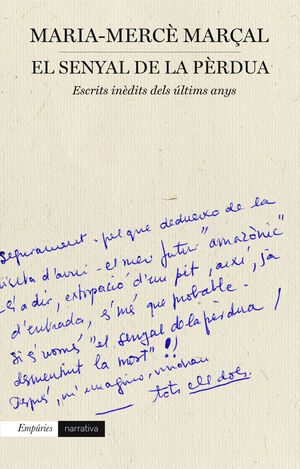 MARIA-MERCÈ MARÇAL
EL SENYAL DE LA PÈRDUA
Escrits inèdits dels últims anys
segurament - pel que dedueixo de la
visita d'avui - el meu futur "amazònic"
és a dir, extirpació d'un pit, així, ja
d'entrada, s'més que probable.
Si és només "el senyal de la pèrdua /
desmentint la mort"!!
Després, m'imagino, vindran
tots els dols.
Empúries narrativa